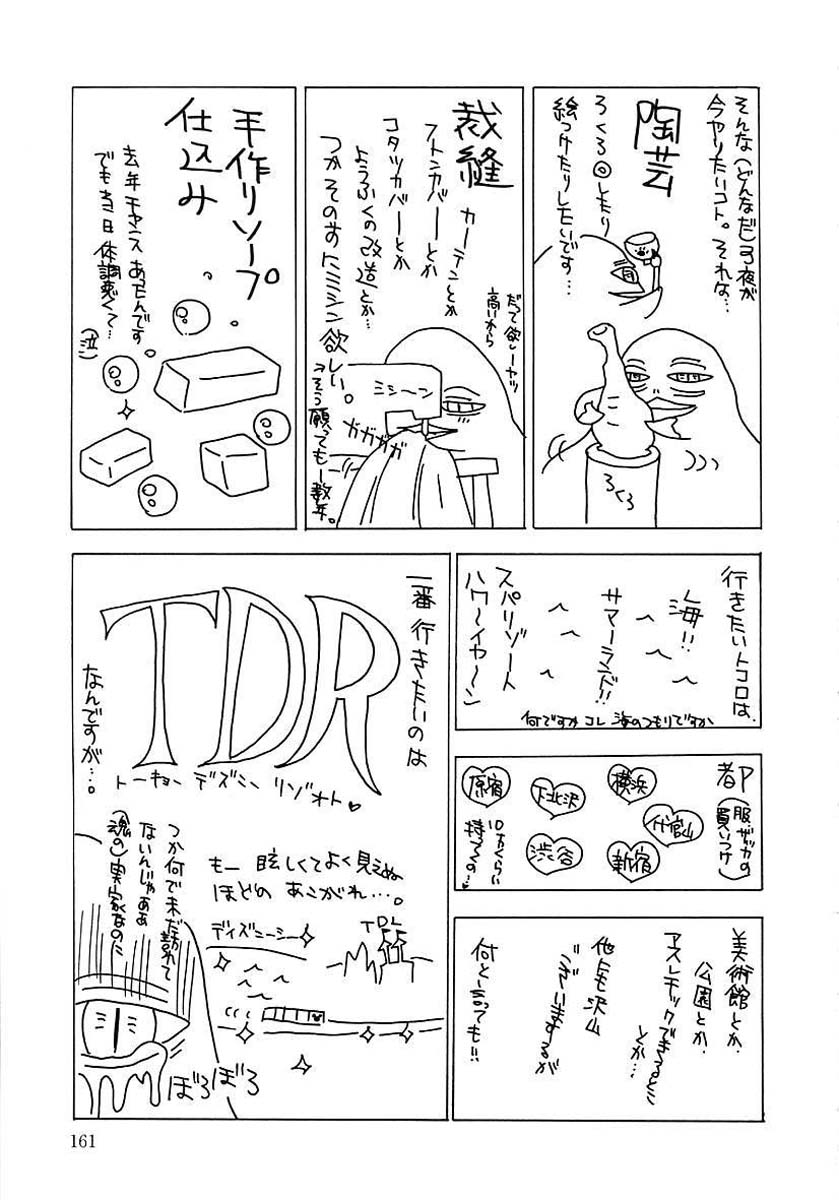 そんな(どんなだ)弓夜が
今やりたいコト。それは…
陶芸
ろくろ◎しもり
絵つけたりしたいです…
ろくろ
裁縫
カーテンとか
フトンカバーとか
コタツカバーとか
ようふくの改造とか…
つかそのまえにミシン欲しい。
だって欲しーヤツ
高いから
→そう願っても一数年。
ミシーン
ガガガガ
手作りソープ
仕込み
去年チャンスあったんです
でも当日体調悪くて…
(泣)
行きたいトコロは、
海!!
サマーランド!!
スパリゾート
ハワ〜イヤ〜ン
何ですかコレ 海のつもりですか
都内
(服・ザッカの
買いつけ)
横浜
代官山
新宿
下北沢
渋谷
原宿
10万くらい
持ってくの…
美術館とか、
公園とか、
アスレチックできるとこ
とか…
他にも沢山
ございまするが
何と言っても!!
一番行きたいのは
TDR
トーキョー デズニー リゾオト♥
なんですが…。
もー 眩しくてよく見えぬ
ほどの あこがれ…。
TDL
ディズニーシー
つか何で未だ訪れて
ないんじゃああ
(魂の)実家なのに
ぼろぼろ
161